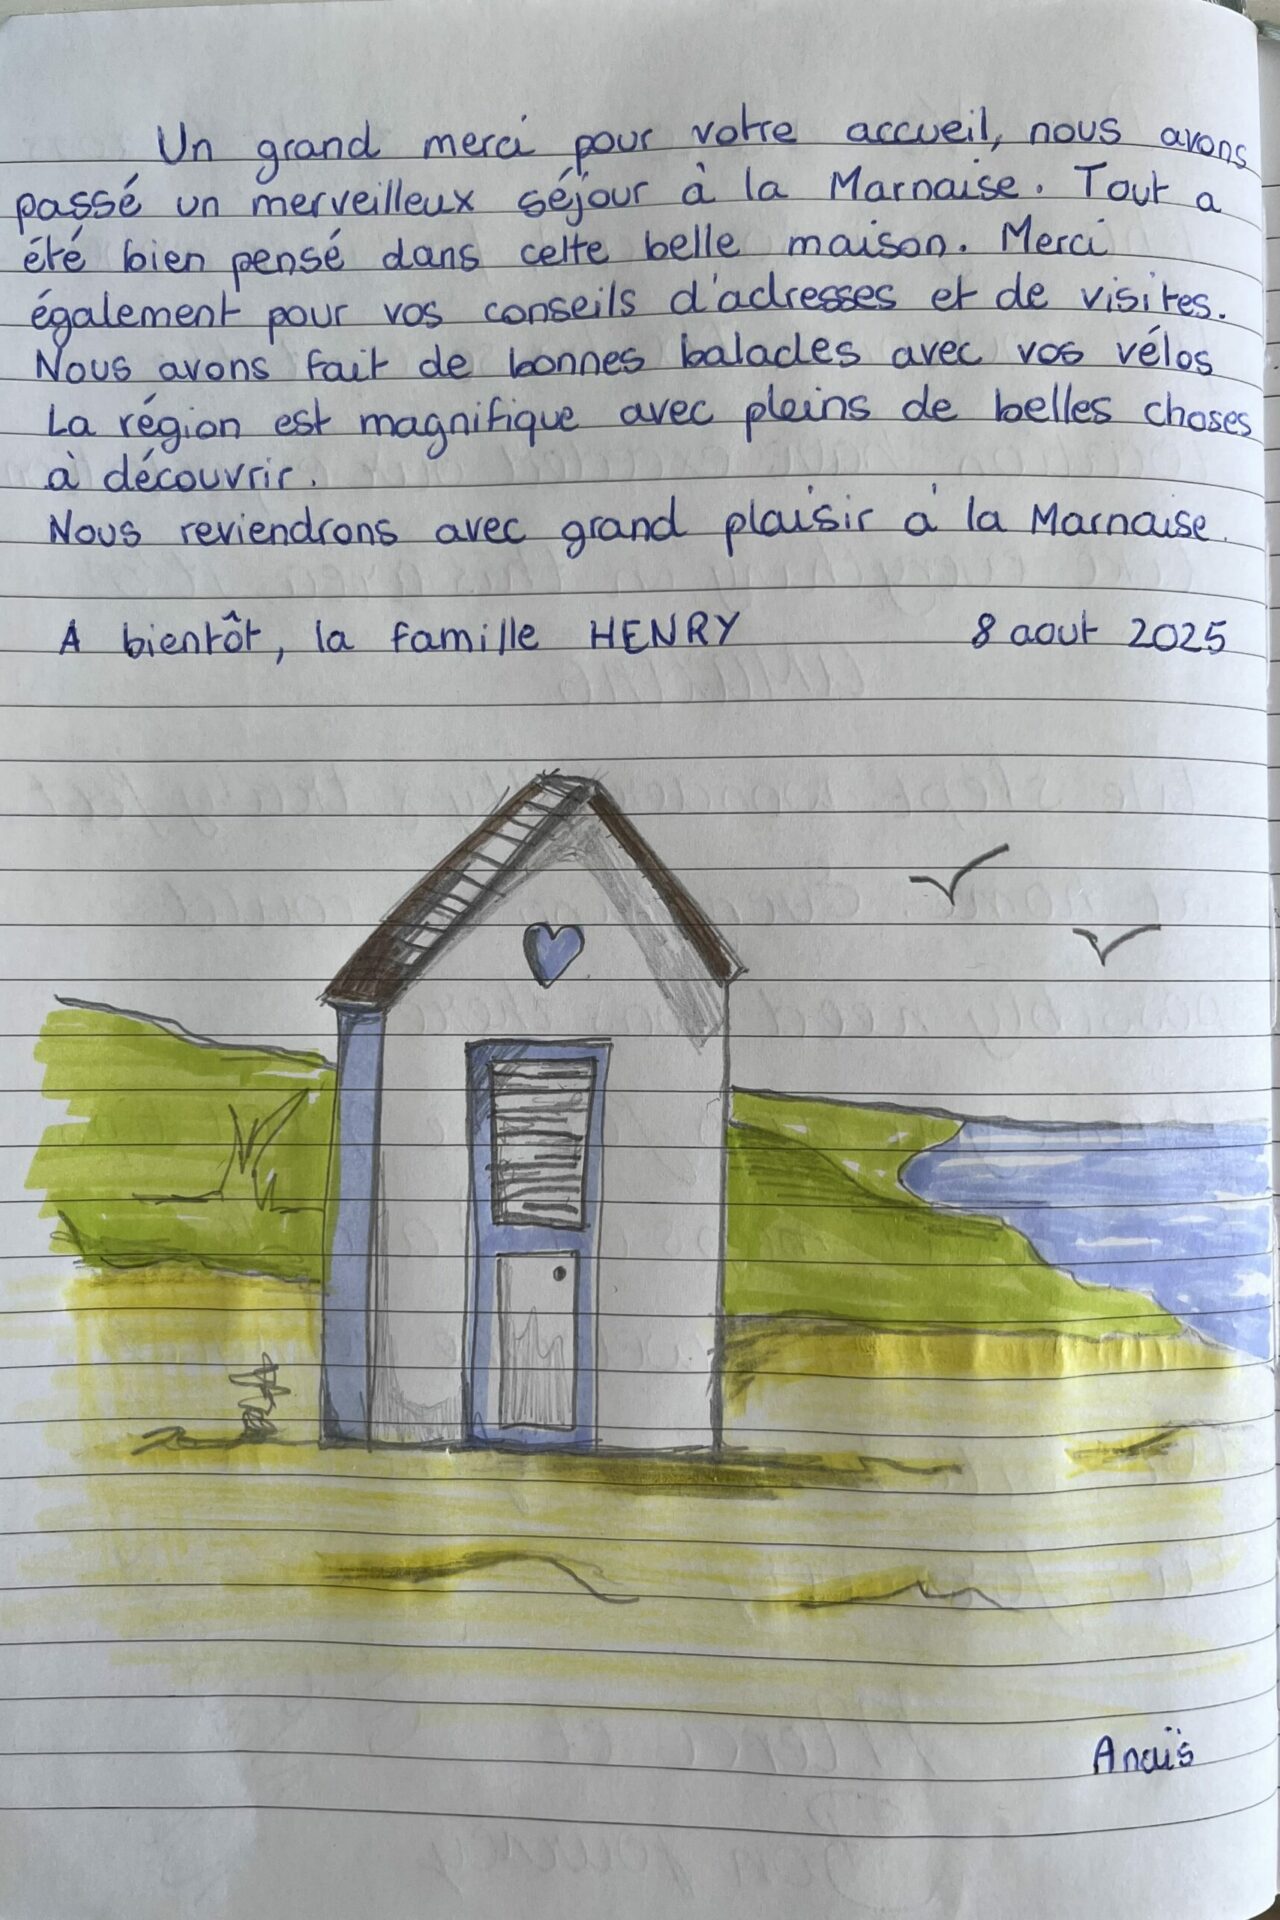 Un grand merci pour votre accueil, nous avons
passé un merveilleux séjour à la Marnaise. Tout a
été bien pensé dans cette belle maison. Merci
également pour vos conseils d'adresses et de visites.
Nous avons fait de bonnes balades avec vos vélos
La région est magnifique avec pleins de belles choses
à découvrir.
Nous reviendrons avec grand plaisir à la Marnaise.
A bientôt, la famille HENRY 8 aout 2025
Anaïs